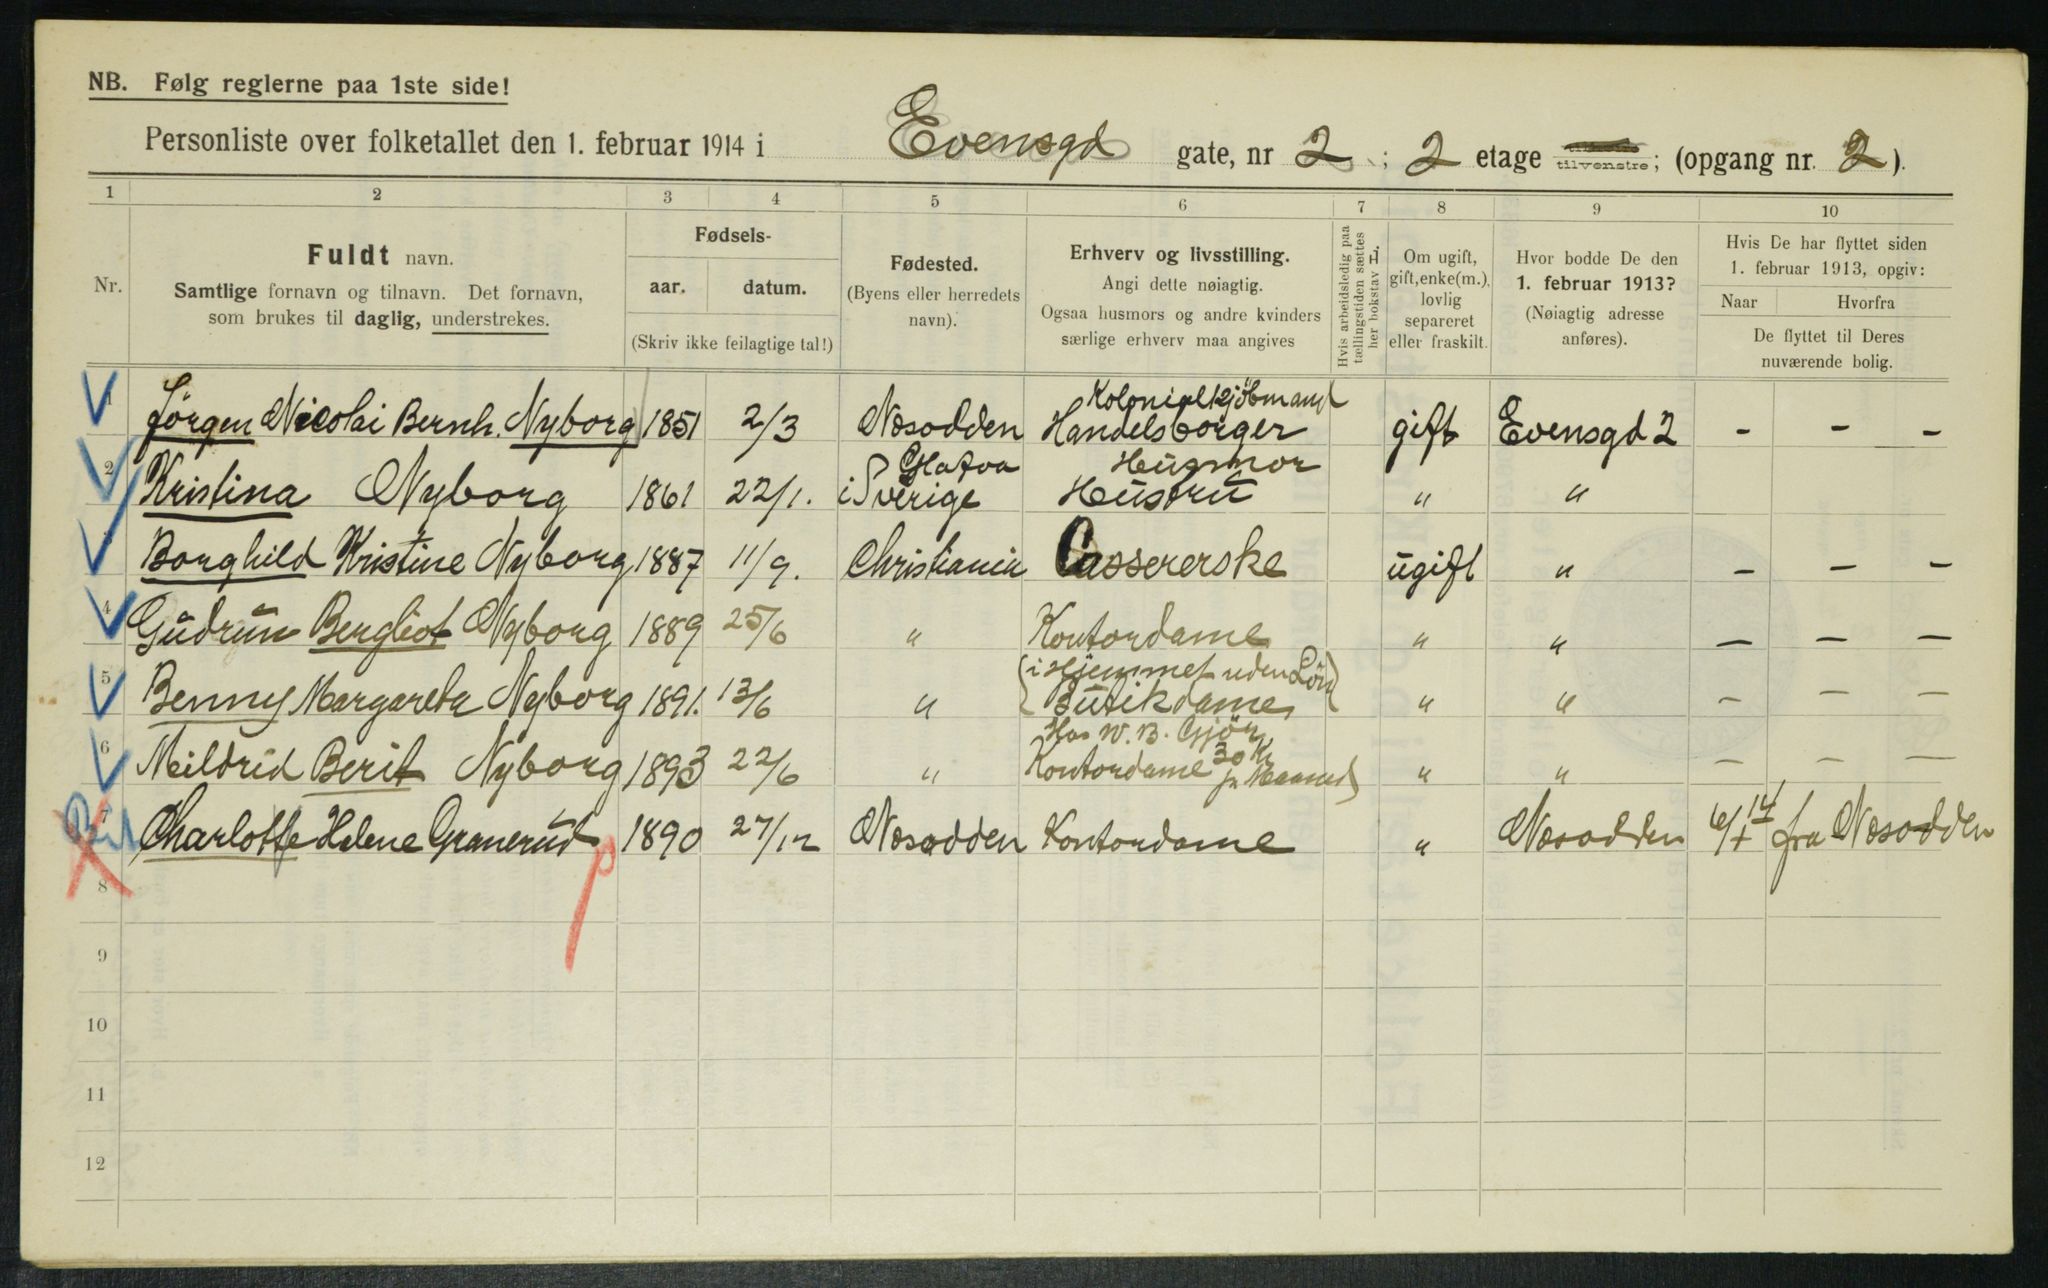 NB. Følg reglerne paa 1ste side!
Personliste over folketallet den 1. februar 1914 i Evensgd gate, nr 2 ; 2 etage tilvenstre; (opgang nr. 2 ).
1 2 3 4 5 6 7 8 9 10
Nr.
Fuldt navn.
Samtlige fornavn og tilnavn. Det fornavn,
som brukes til daglig, understrekes.
Fødsels-
aar. datum.
(Skriv ikke feilagtige tal!)
Fødested.
(Byens eller herredets
navn).
Erhverv og livsstilling.
Angi dette nøiagtig.
Ogsaa husmors og andre kvinders
særlige erhverv maa angives
Hvis arbeidsledig paa
tællingstiden sættes
her bokstav L.
Om ugift,
gift, enke(m.),
lovlig
separeret
eller fraskilt.
Hvor bodde De den
1. februar 1913?
(Nøiagtig adresse
anføres).
Hvis De har flyttet siden
1. februar 1913, opgiv:
Naar Hvorfra
De flyttet til Deres
nuværende bolig.
Kolonialkjöbmand
1 Jörgen Nicolai Bernh. Nyborg 1851 2/3 Nesodden Handelsborger gift Evensgd 2 - - -
Husmor
2 Kristina Nyborg 1861 22/1. i Sverige Hustrü " "
3 Borghild Kristine Nyborg 1887 11/9. Christiania Cassererske ugift " - - -
4 Gudrun Bergliot Nyborg 1889 25/6 " Kontordame " " - - -
(i Hjemmet uden Lön)
5 Benny Margareta Nyborg 1891. 13/6 " Butikdame " " -
Hos W. B.
30 Kr
6 Meildrid Berit Nyborg 1893 22/6 " Kontordame pr Maaned " " - - -
7 Charlotte Helene Granerud 1890 27/12 Nesodden Kontordame " Nesodden fra Nesodden
8
9
10
11
12